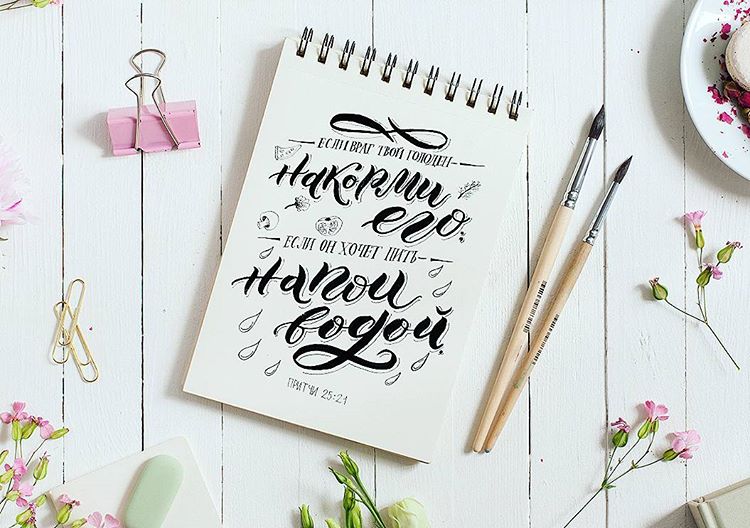 ЕСЛИ ВРАГ ТВОЙ ГОЛОДЕН
накорми
его.
ЕСЛИ ОН ХОЧЕТ ПИТЬ
напои
водой.
ПРИТЧИ 25:21